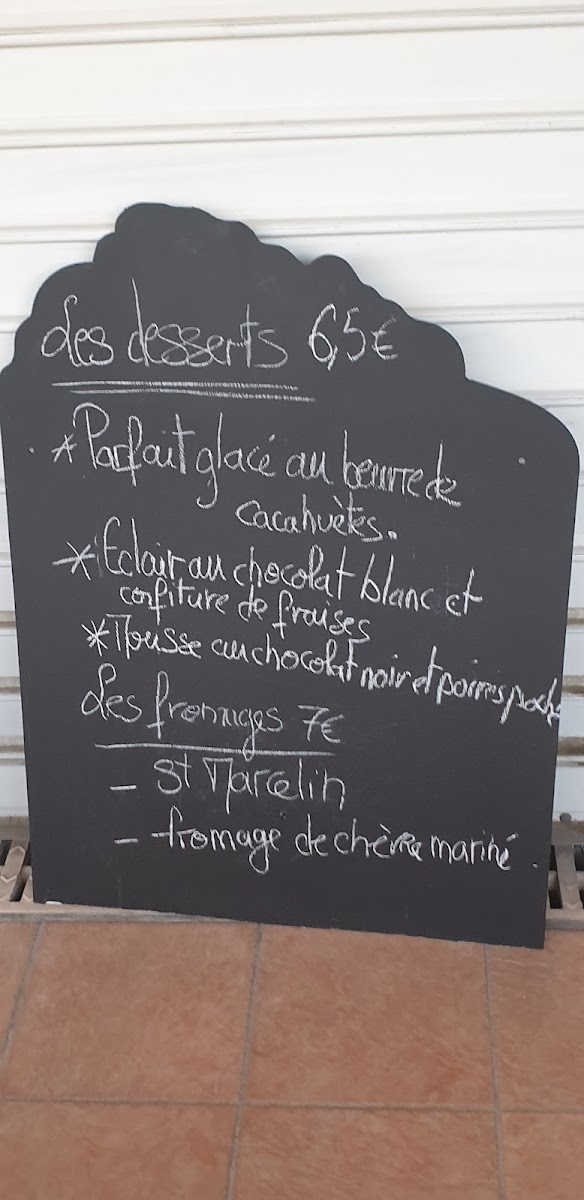 Les desserts 6,5€
* Parfait glacé au beurre de
cacahuètes.
* Eclair au chocolat blanc et
confiture de fraises
* Mousse au chocolat noir et poires
Les fromages 7€
- St Marcelin
- fromage de chèvre mariné